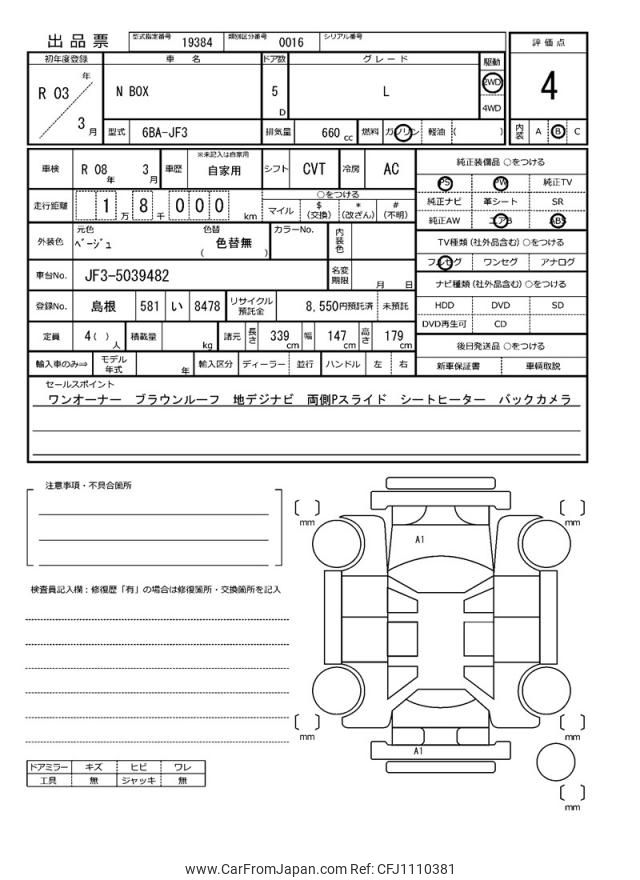 出品票 型式指定番号 19384 類別区分番号 0016 シリアル番号
評価点
4
内装 A B C
初年度登録 車名 ドア数 グレード 駆動
R 03 年 3 月 N BOX 5 D L 2WD 4WD
型式 6BA-JF3 排気量 660 cc 燃料 ガソリン 軽油 ( )
車検 R 08 年 3 月 車歴 ※未記入は自家用 自家用 シフト CVT 冷房 AC
走行距離 1 万 8 千 0 0 0 km ○をつける
マイル $ (交換) * (改ざん) # (不明)
外装色 元色 ベージュ 色替 色替無 ( ) カラーNo. 内装色
車台No. JF3-5039482 名変期限 月 日
登録No. 島根 581 い 8478 リサイクル預託金 8,550円預託済 未預託
定員 4( ) 人 積載量 kg 諸元 長さ 339 cm 幅 147 cm 高さ 179 cm
輸入車のみ⇒ モデル年式 年 輸入区分 ディーラー 並行 ハンドル 左 右
純正装備品 ○をつける
PS PW 純正TV
純正ナビ 革シート SR
純正AW エアB ABS
TV種類 (社外品含む) ○をつける
フルセグ ワンセグ アナログ
ナビ種類 (社外品含む) ○をつける
HDD DVD SD
DVD再生可 CD
後日発送品 ○をつける
新車保証書 車輌取説
セールスポイント
ワンオーナー ブラウンルーフ 地デジナビ 両側Pスライド シートヒーター バックカメラ
注意事項・不具合箇所
検査員記入欄：修復歴「有」の場合は修復箇所・交換箇所を記入
ドアミラー キズ ヒビ ワレ
工具 無 ジャッキ 無
[ ] mm [ ] mm
A1
[ ] mm [ ] mm
A1
[ ] mm
www.CarFromJapan.com Ref: CFJ1110381